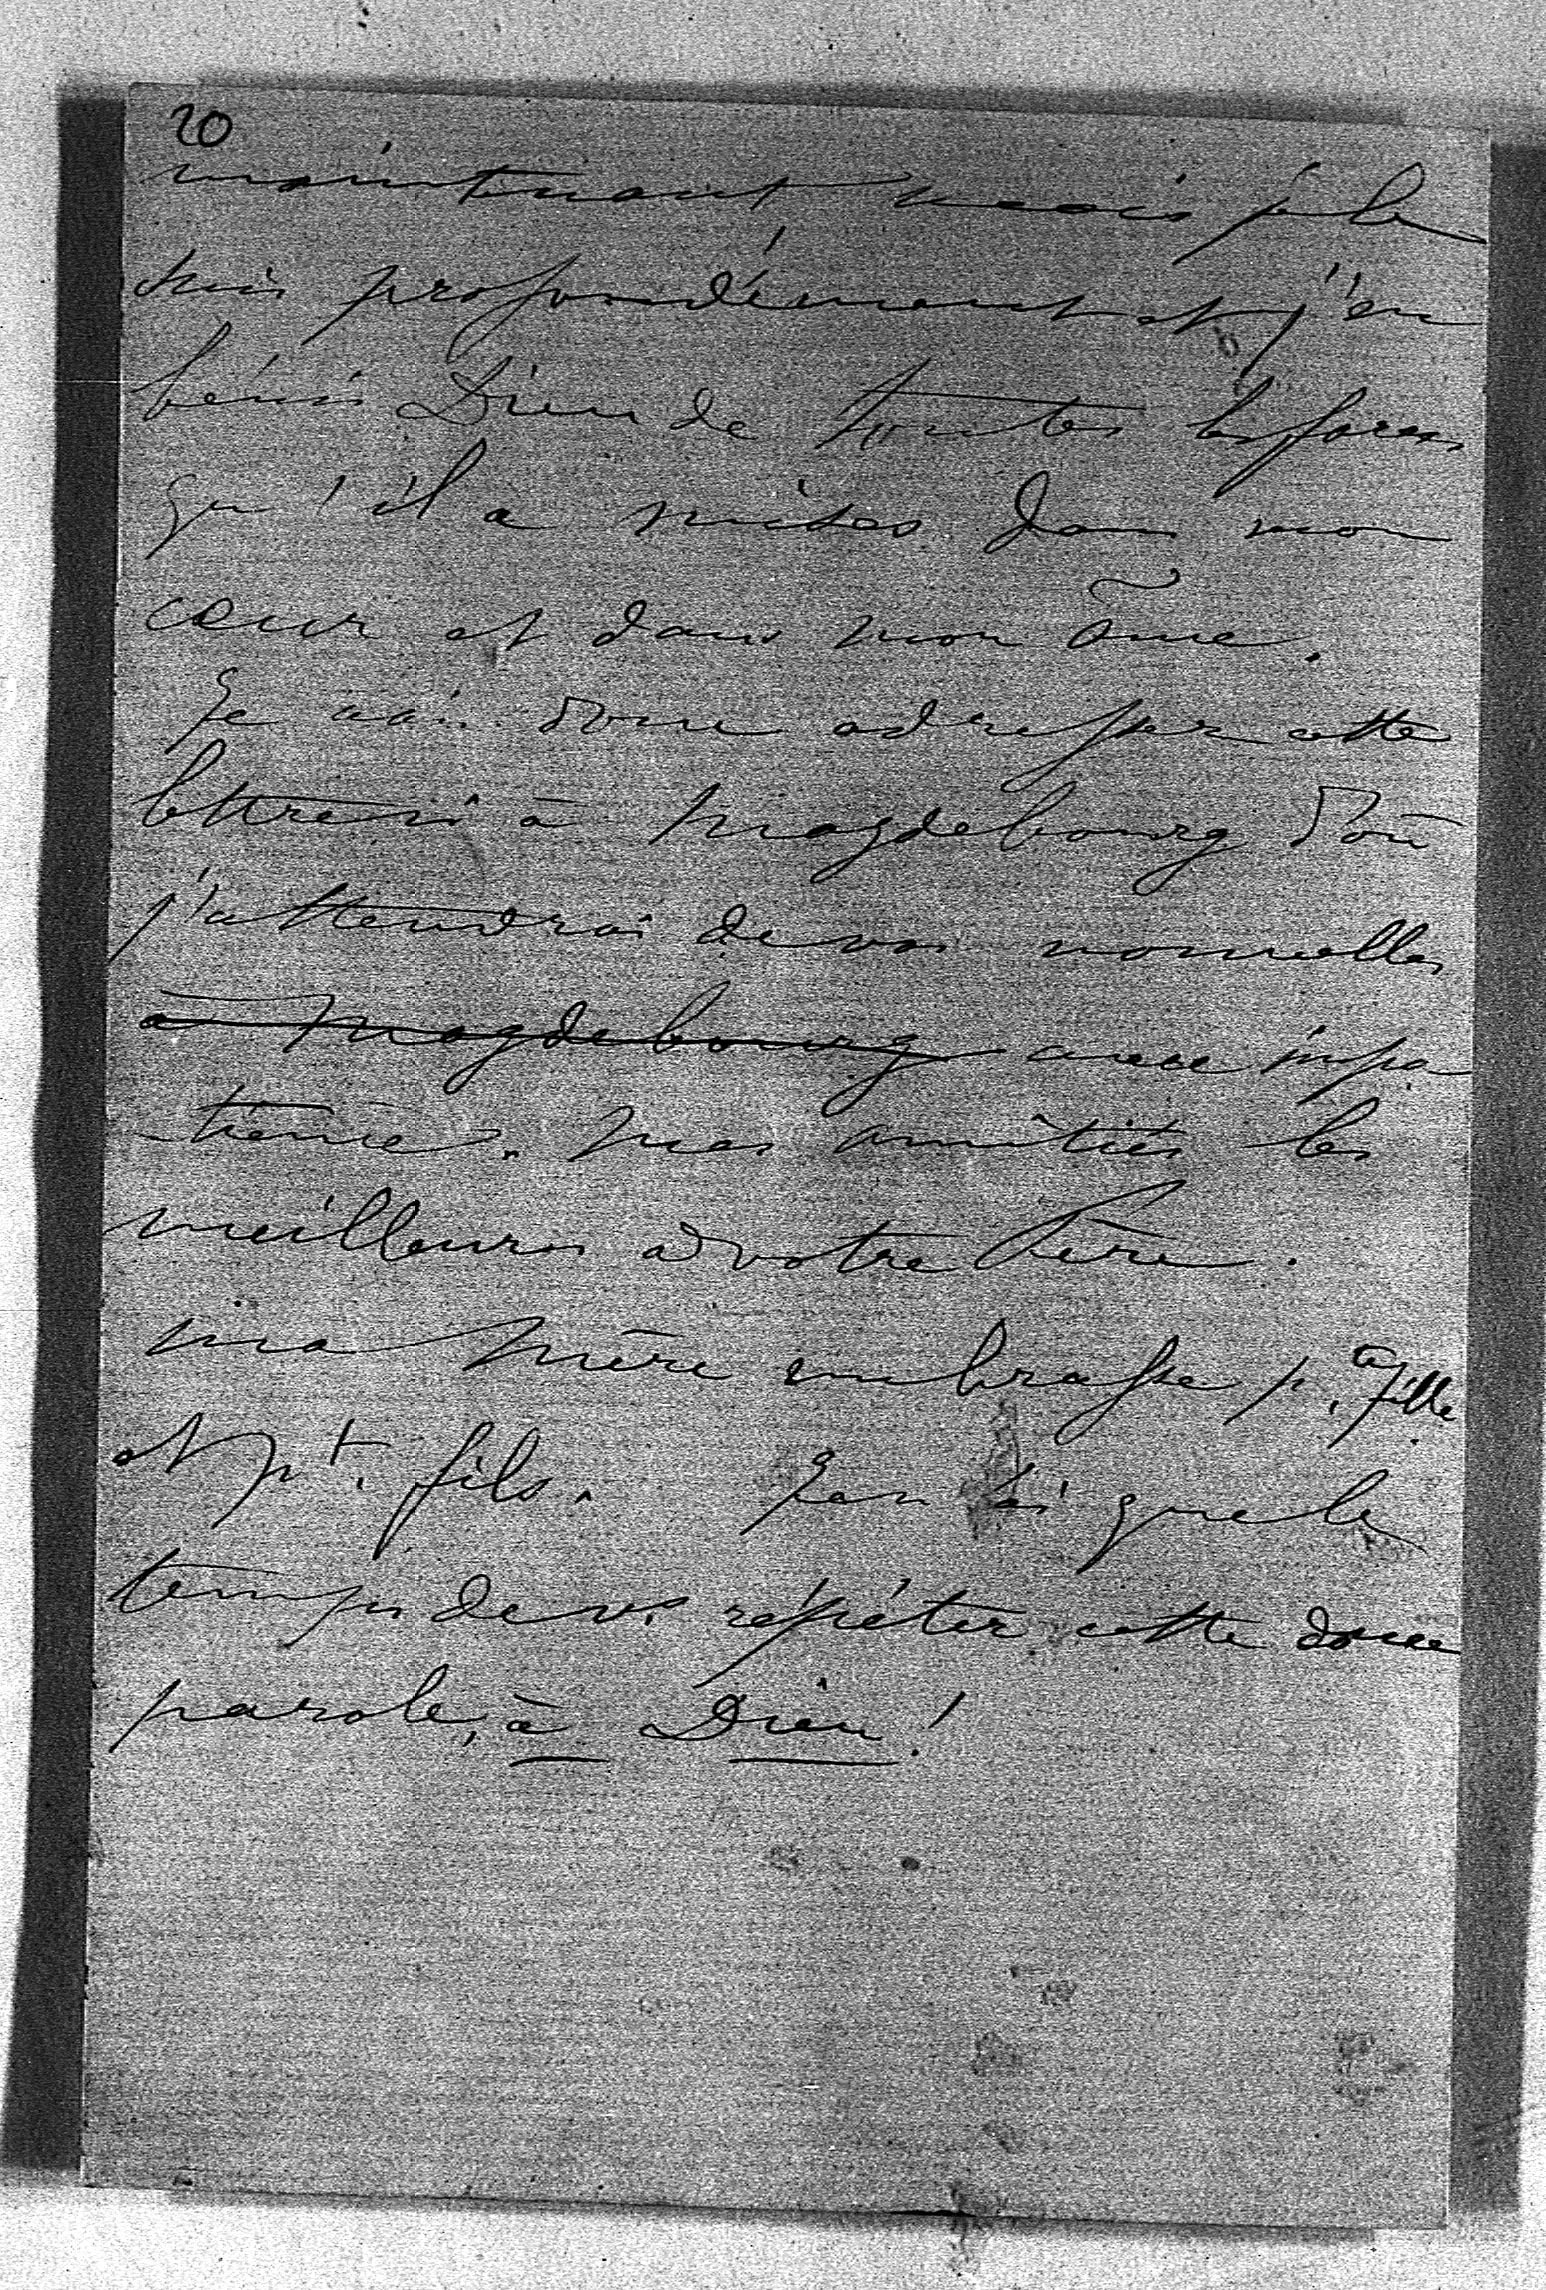 20
maintenant mais je le
suis profondément et j'en
bénis Dieu de toutes les forces
qu'il a mises dans mon
cœur et dans mon âme.
Je vais donc adresser cette
lettre ci à Magdebourg d'où
j'attendrai de vos nouvelles
à Magdebourg avec impa
tience. Mes amitiés les
meilleures à votre Père.
Ma Mère embrasse p.te fille
et pt. fils. Je n'ai que le
temps de vs répéter cette douce
parole, à Dieu!